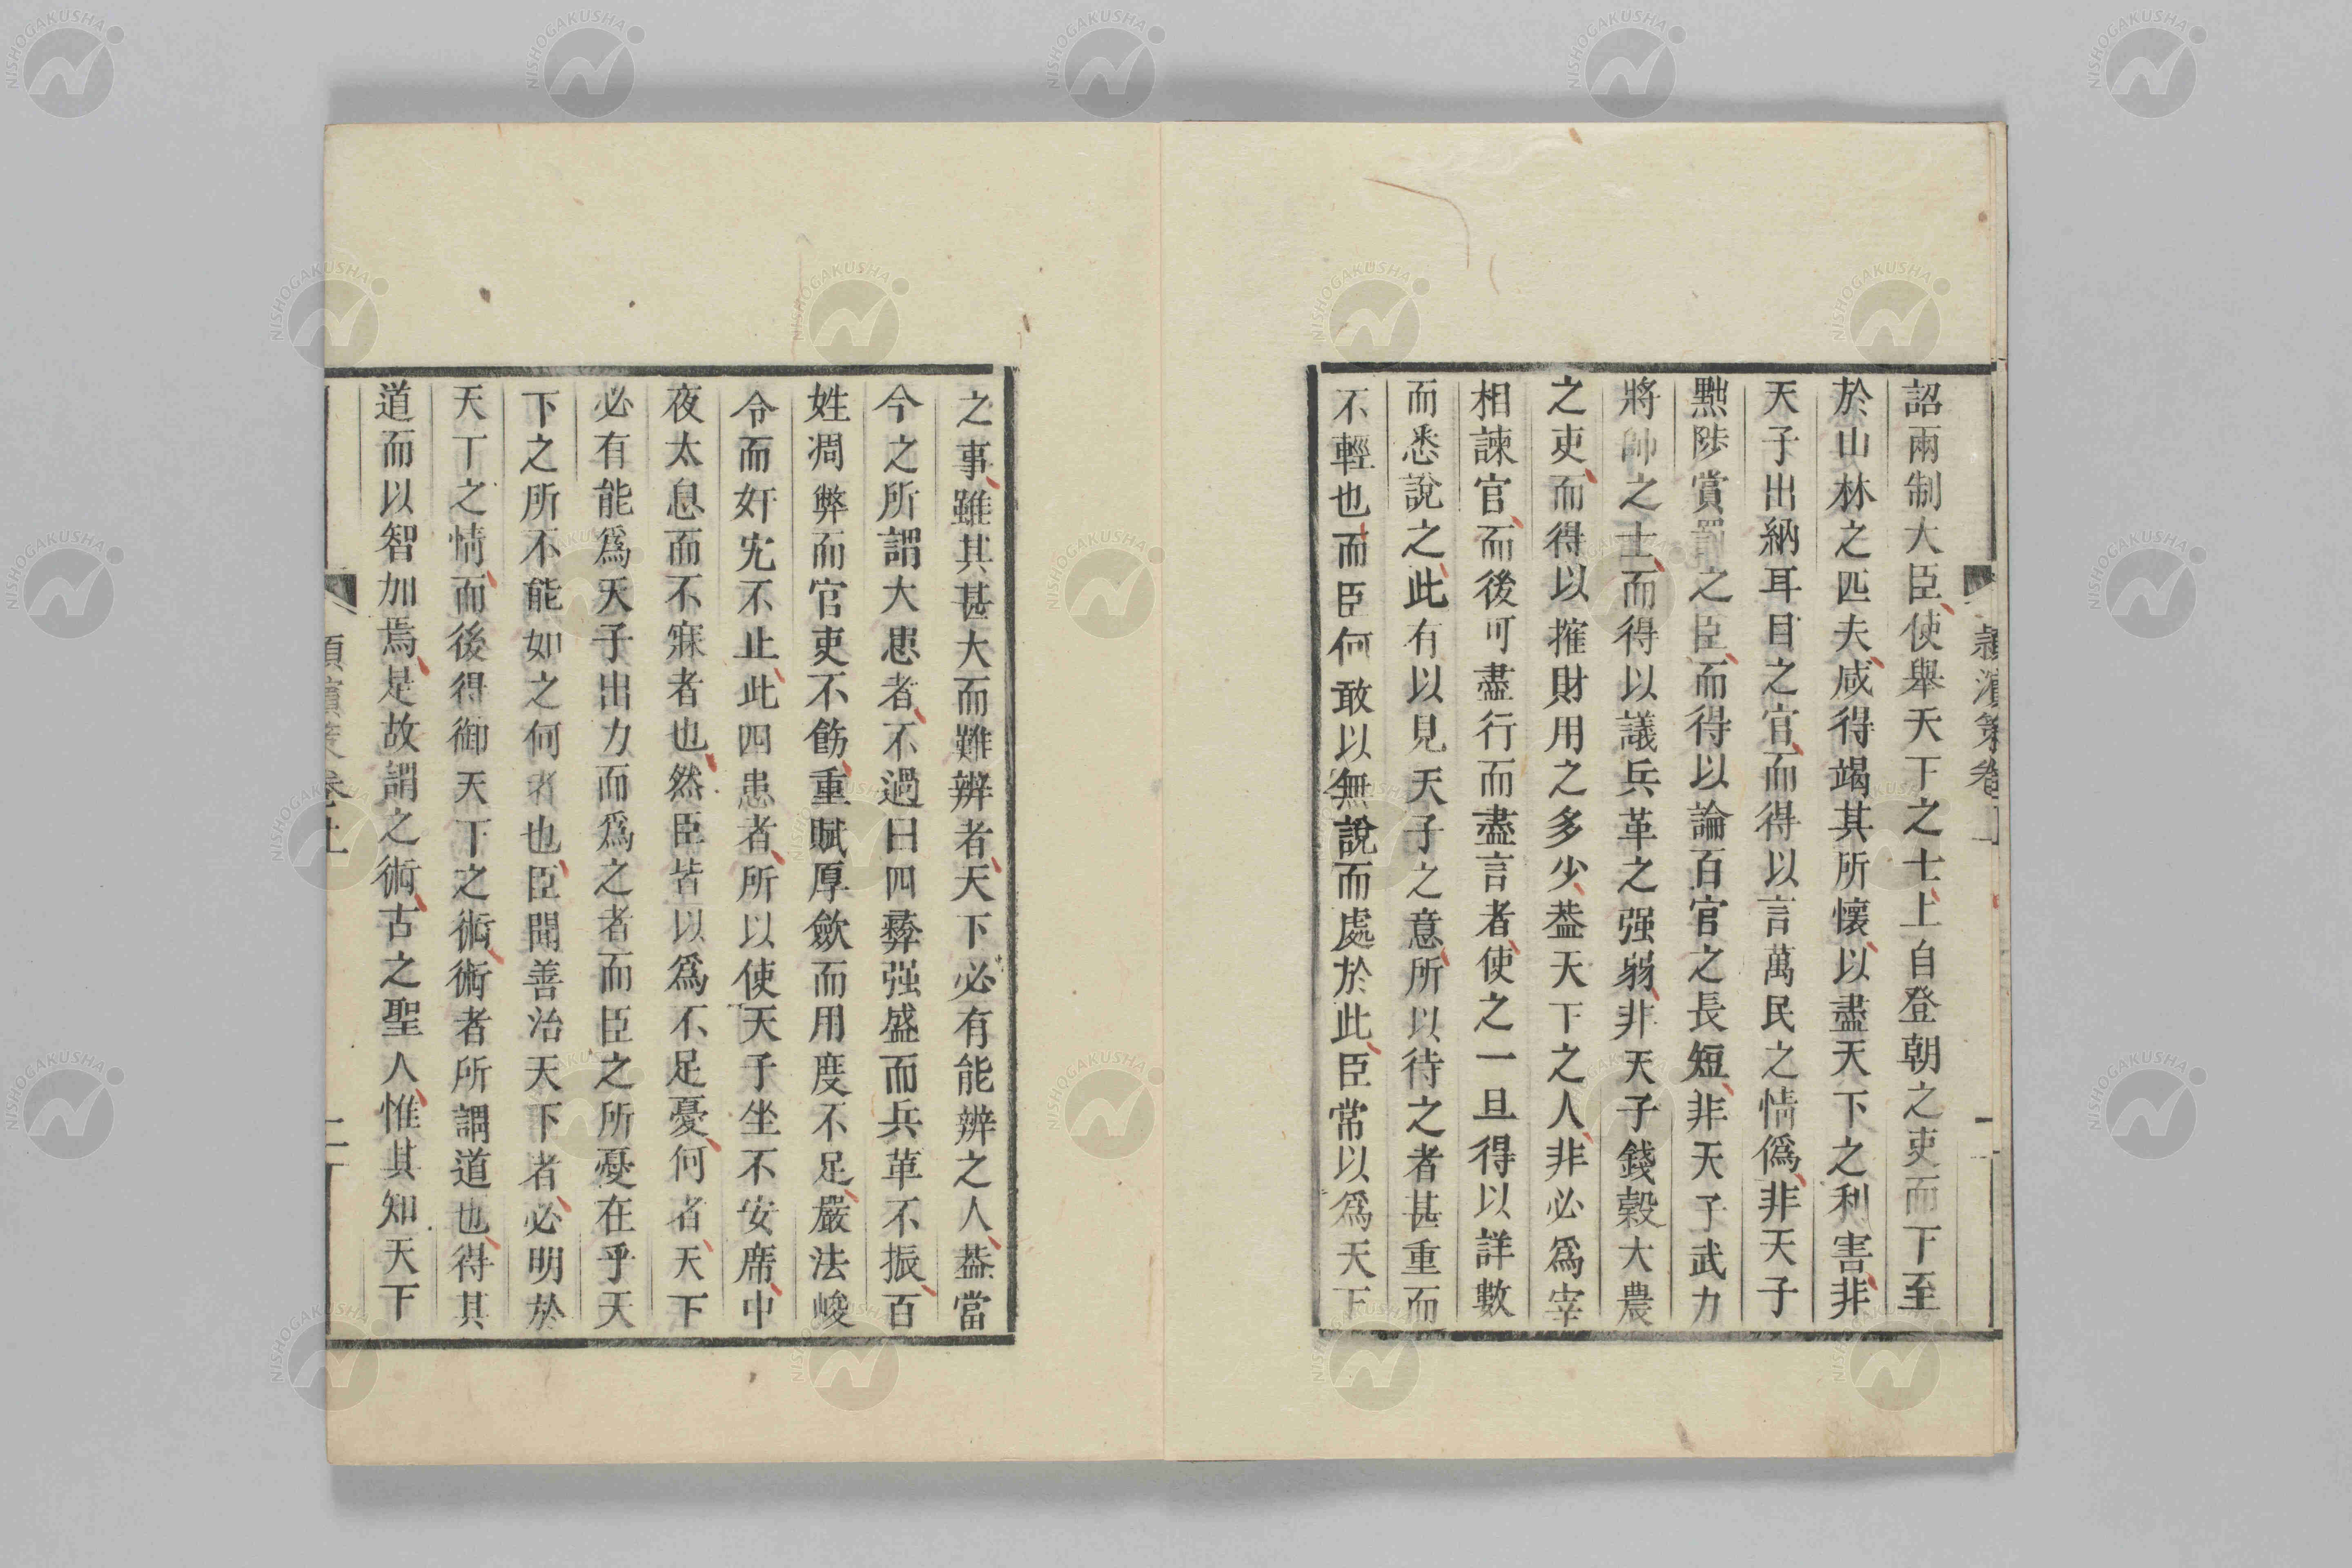 詔兩制大臣使舉天下之士上自登朝之吏而下至
於山林之匹夫咸得竭其所懷以盡天下之利害非
天子出納耳目之官而得以言萬民之情僞非天子
黜陟賞罰之臣而得以論百官之長短非天子武力
將帥之士而得以議兵革之强弱非天子錢穀大農
之吏而得以搉財用之多少葢天下之人非必爲宰
相諫官而後可盡行而盡言者使之一旦得以詳數
而悉說之此有以見天子之意所以待之者甚重而
不輕也而臣何敢以無說而處於此臣常以爲天下
之事雖其甚大而難辨者天下必有能辨之人葢當
今之所謂大患者不過曰四彝强盛而兵革不振百
姓凋弊而官吏不飭重賦厚斂而用度不足嚴法峻
令而奸宄不止此四患者所以使天子坐不安席中
夜太息而不寐者也然臣皆以爲不足憂何者天下
必有能爲天子出力而爲之者而臣之所憂在乎天
下之所不能如之何者也臣聞善治天下者必明於
天下之情而後得御天下之術術者所謂道也得其
道而以智加焉是故謂之術古之聖人惟其知天下
NISHOGAKUSHA